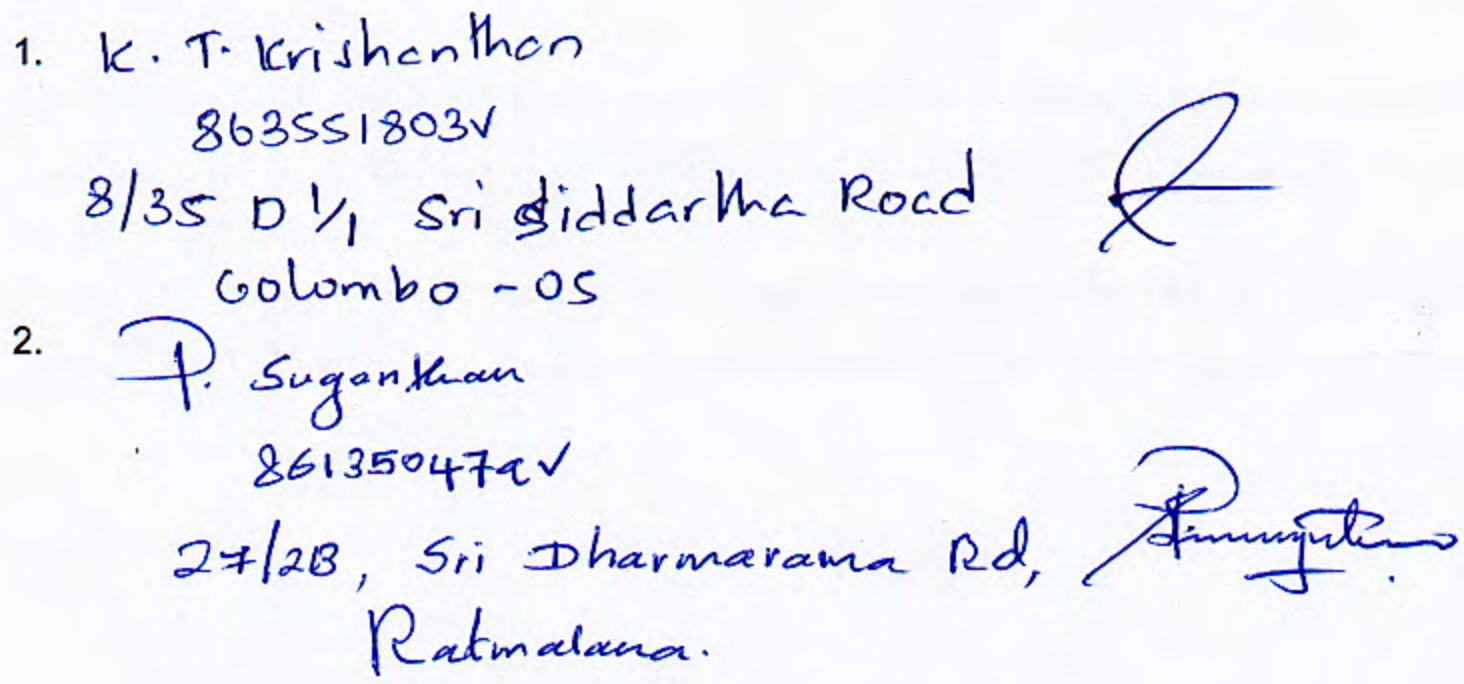 1. K. T. Krishanthan
863551803V
8/35 D 1/1 Sri Siddartha Road
Colombo - 05
2. P. Suganthan
861350479V
27/2B, Sri Dharmarama Rd,
Ratmalana.